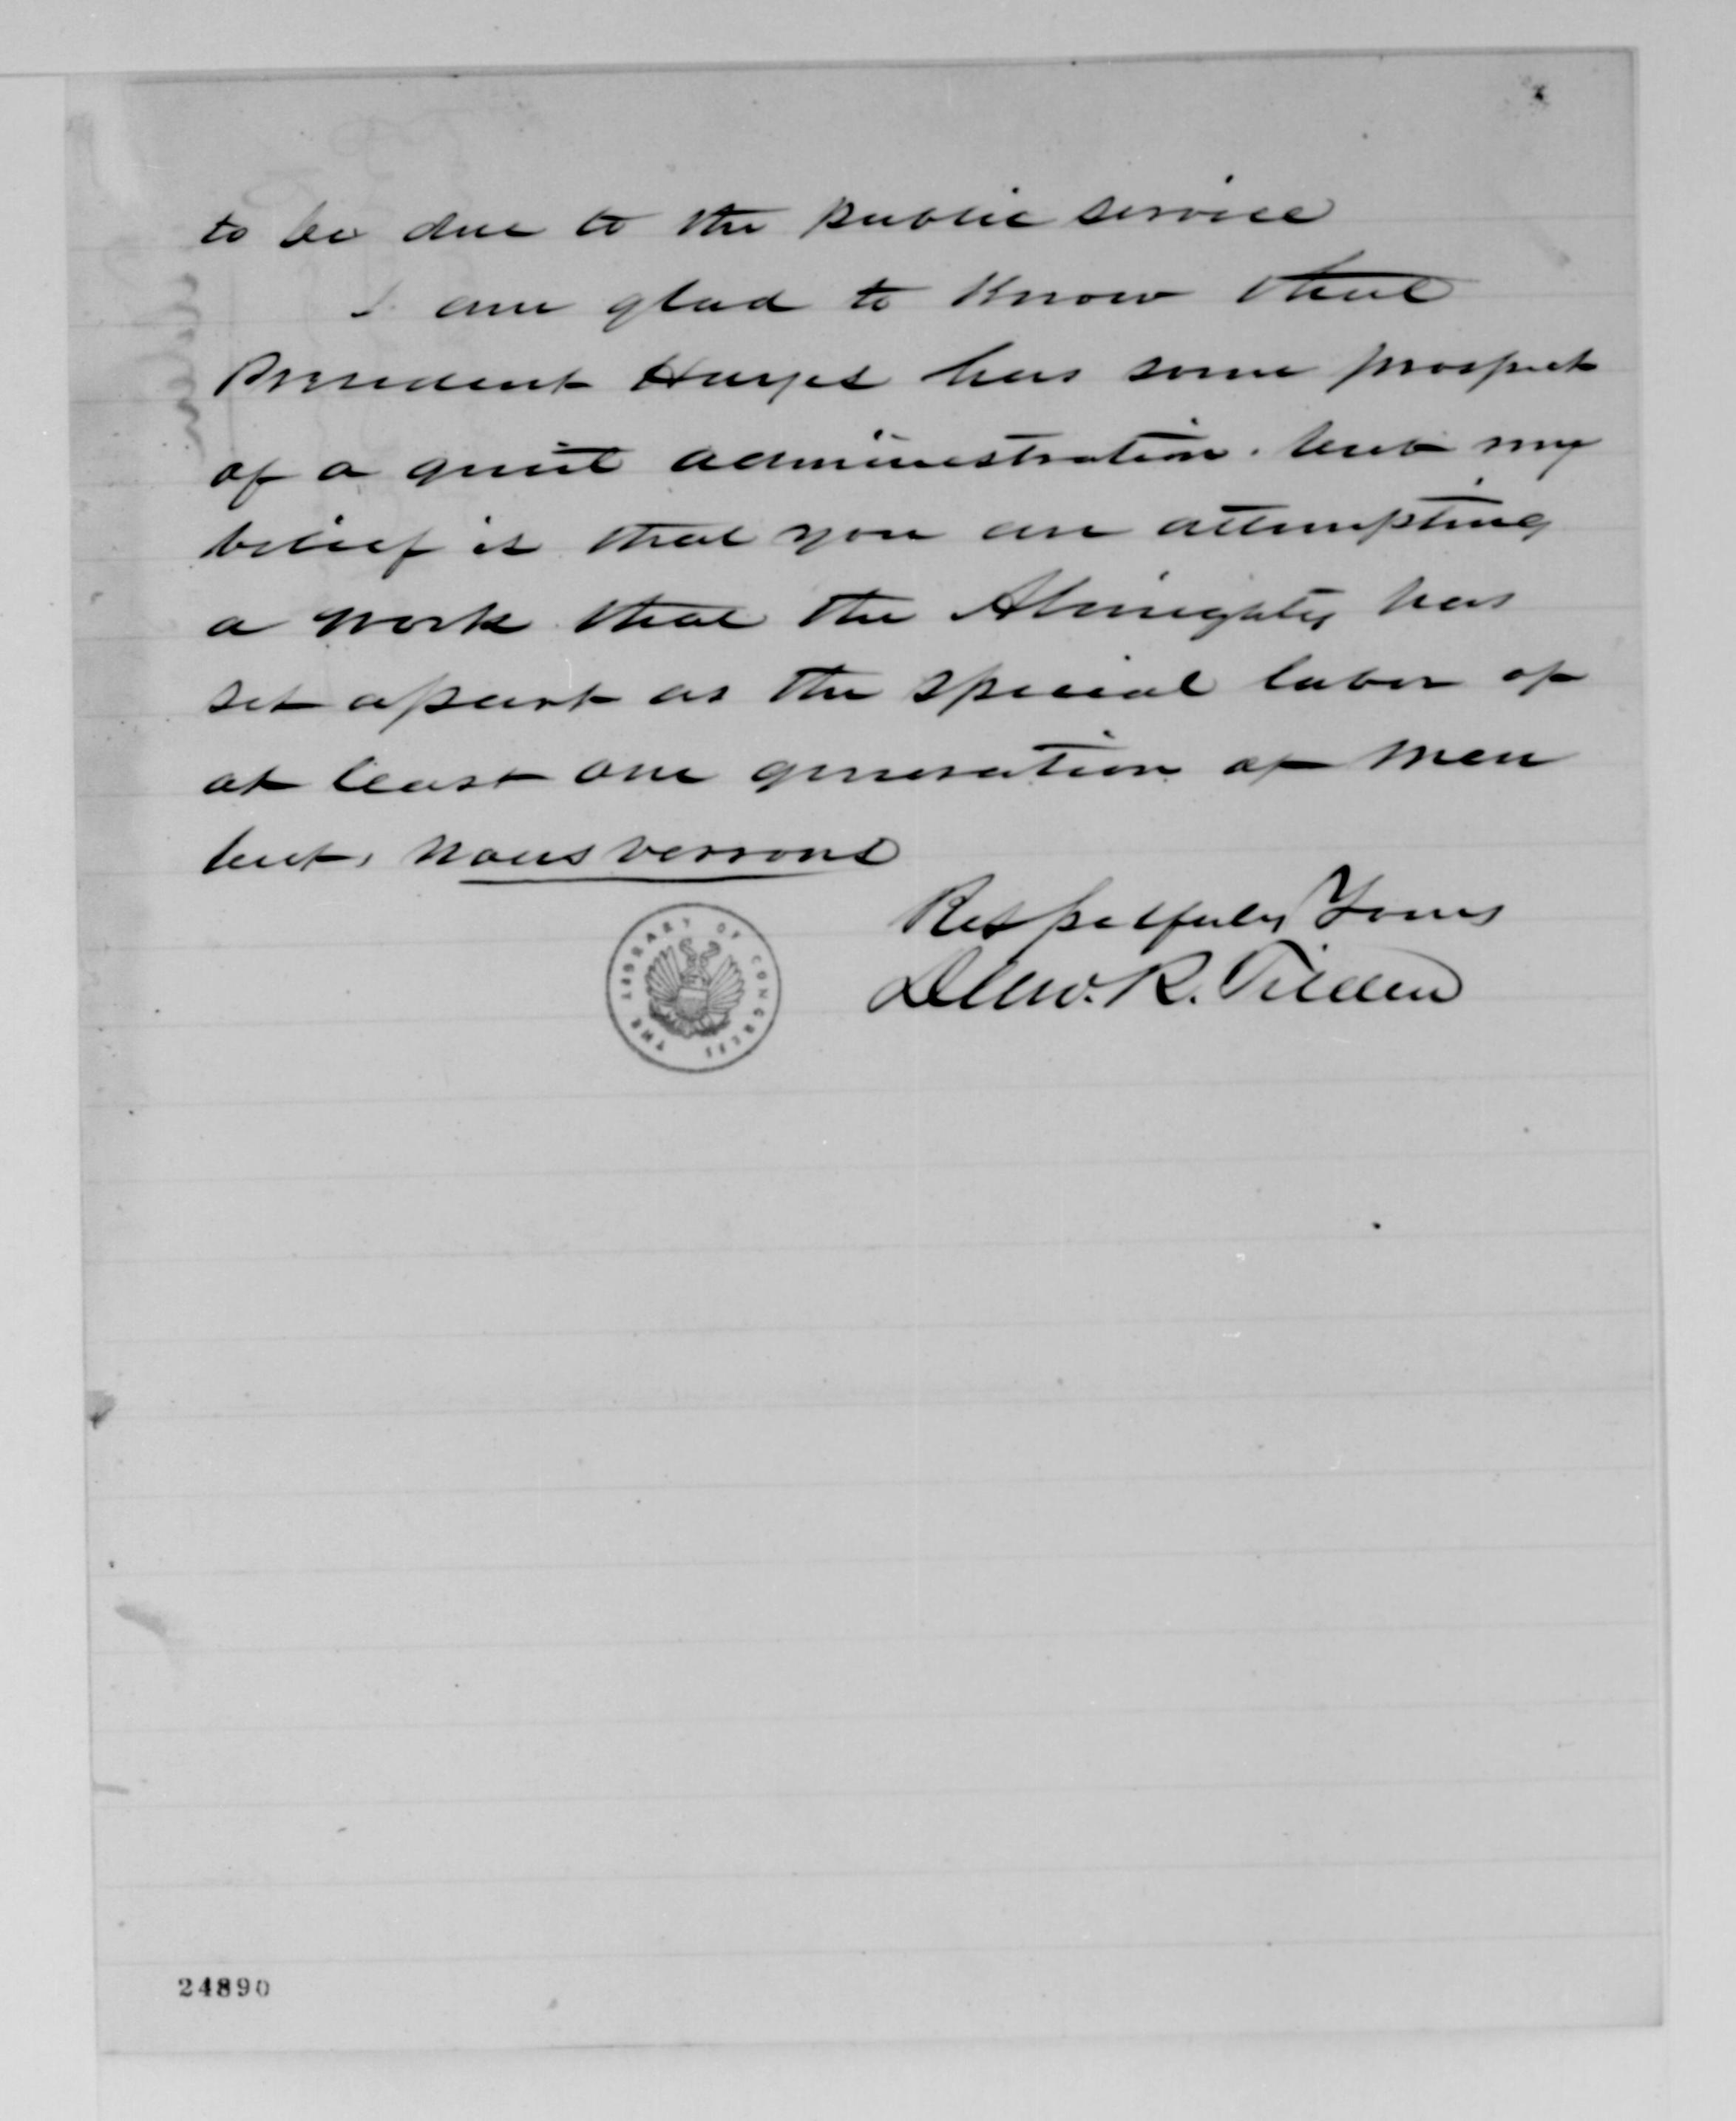 to be due to the public service
I am glad to know that
President Hayes has some prospect
of a quiet administration. but my
belief is that you are attempting
a work that the Almighty has
set apart as the special labor of
at least one generation of men
but, nous verrons
Respectfully Yours
R. Tilden
THE LIBRARY OF CONGRESS
24890